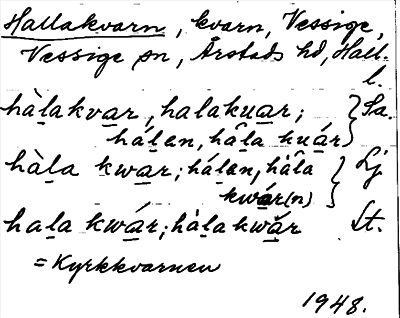 Hallakvarn, kvarn, Vessige,
Vessige sn, Årstads hd, Hall.
l.
hàl̲akva̲r, halakua̲r; } Sa.
hál̲en, hâl̲a kuá̲r
hàl̲a kwa̲r; hál̲en, hàl̲a } Lj
kwá̲r(n)
hal̲a kwá̲r; hàl̲akwǎ̲r St.
= Kyrkkvarnen
1948.